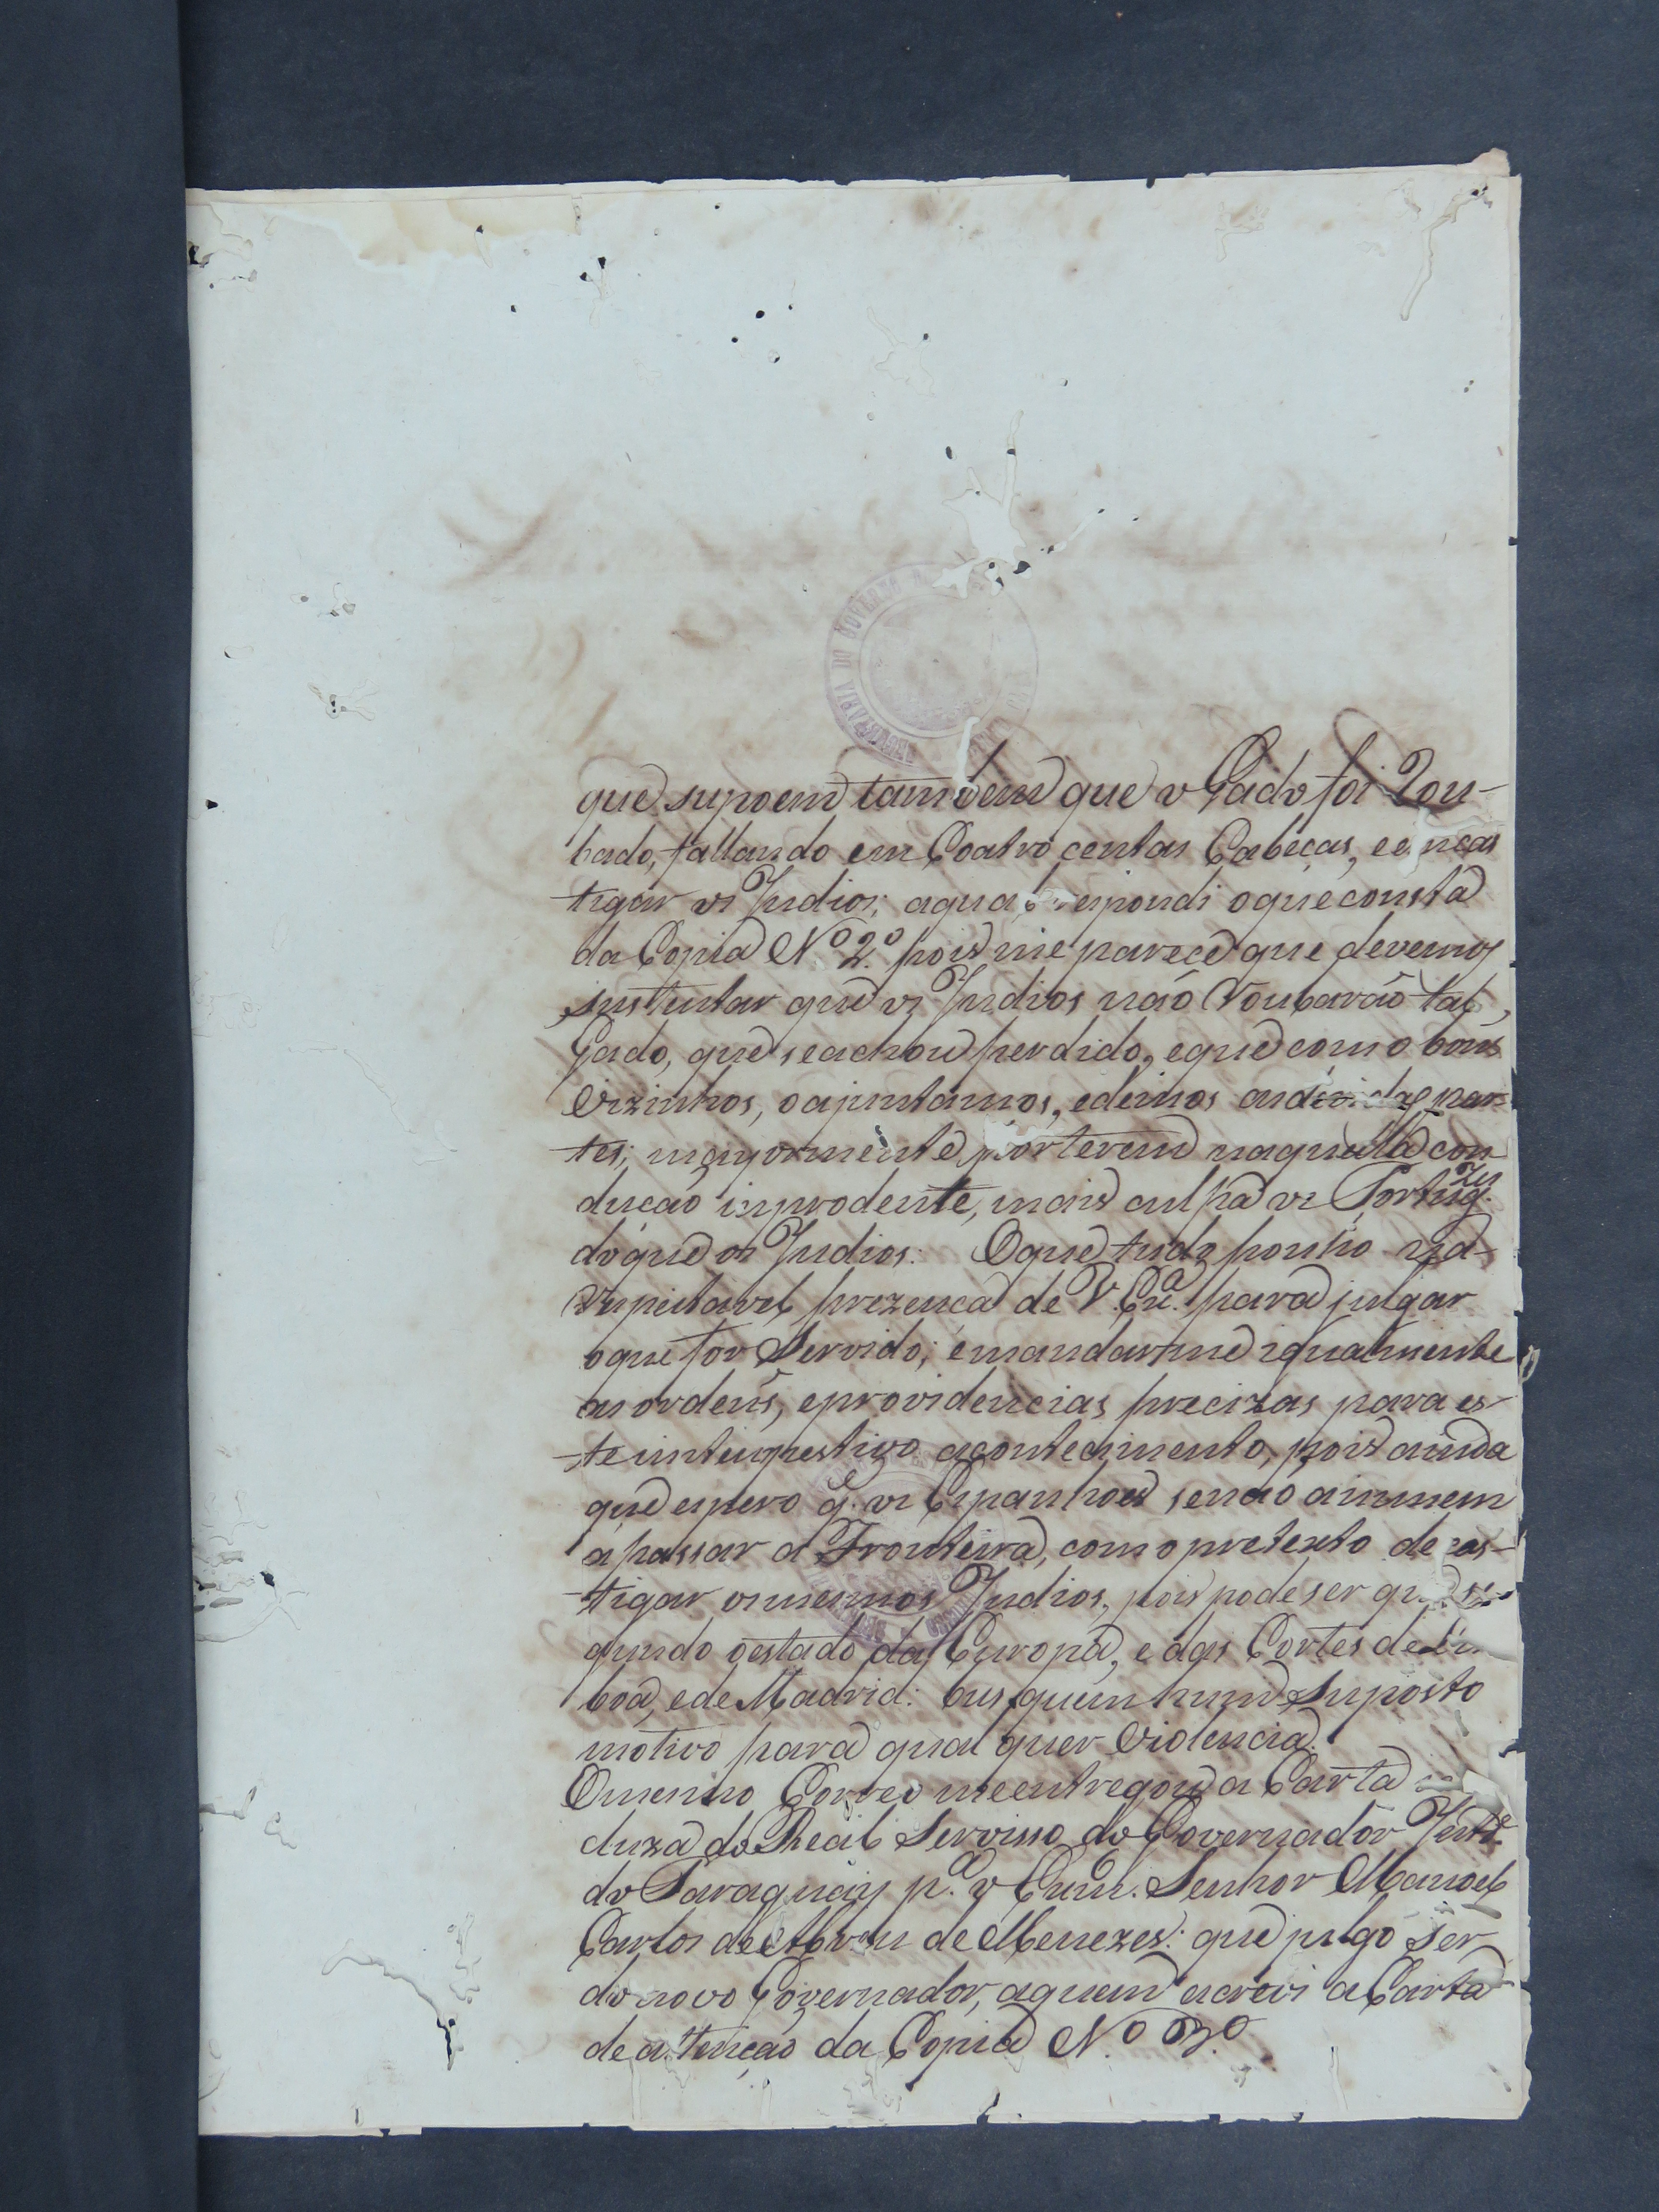 que supoem tambem que o Gado foi Rou-
bado, fallando em Coatro centas Cabeças, e em cas
tigar os Indios; a qual respondi o que consta
da Copia N.º 2.º pois me parece que devemos
sustentar que os Indios não Roubarão tal
Gado, que se achou perdido, e que como bons
Vizinhos, o ajuntamos, e demos as devidas par-
tes; mayormente por terem naquella con-
dução inprodente, mais culpa os Portug.zes
do que os Indios: O que tudo ponho na
Respeitavel prezença de V. Ex.ª para julgar
o que for Servido; e mandarme igualmente
as ordens, e providencias precizas para es-
te intenpestivo acontecimento, pois ainda
que espero q.e os Espanhoes se não animem
a passar a Fronteira, com o pretexto de cas-
tigar os mesmos Indios, pois pode ser que se-
gundo o estado da Europa, e das Cortes de Lis
boa, e de Madrid: busquem hum suposto
motivo para qual quer Violencia.
O mesmo Correo me entregou a Carta in
cluza do Real Servisso do Governador Int.e
do Paraguay p.ª o Exm. Senhor Manoel
Carlos de Abreu de Menezes: que julgo ser
do novo Governador, a quem escrevi a Carta
de attenção da Copia N.º 3.º
SECRETARIA DO GOVERNO